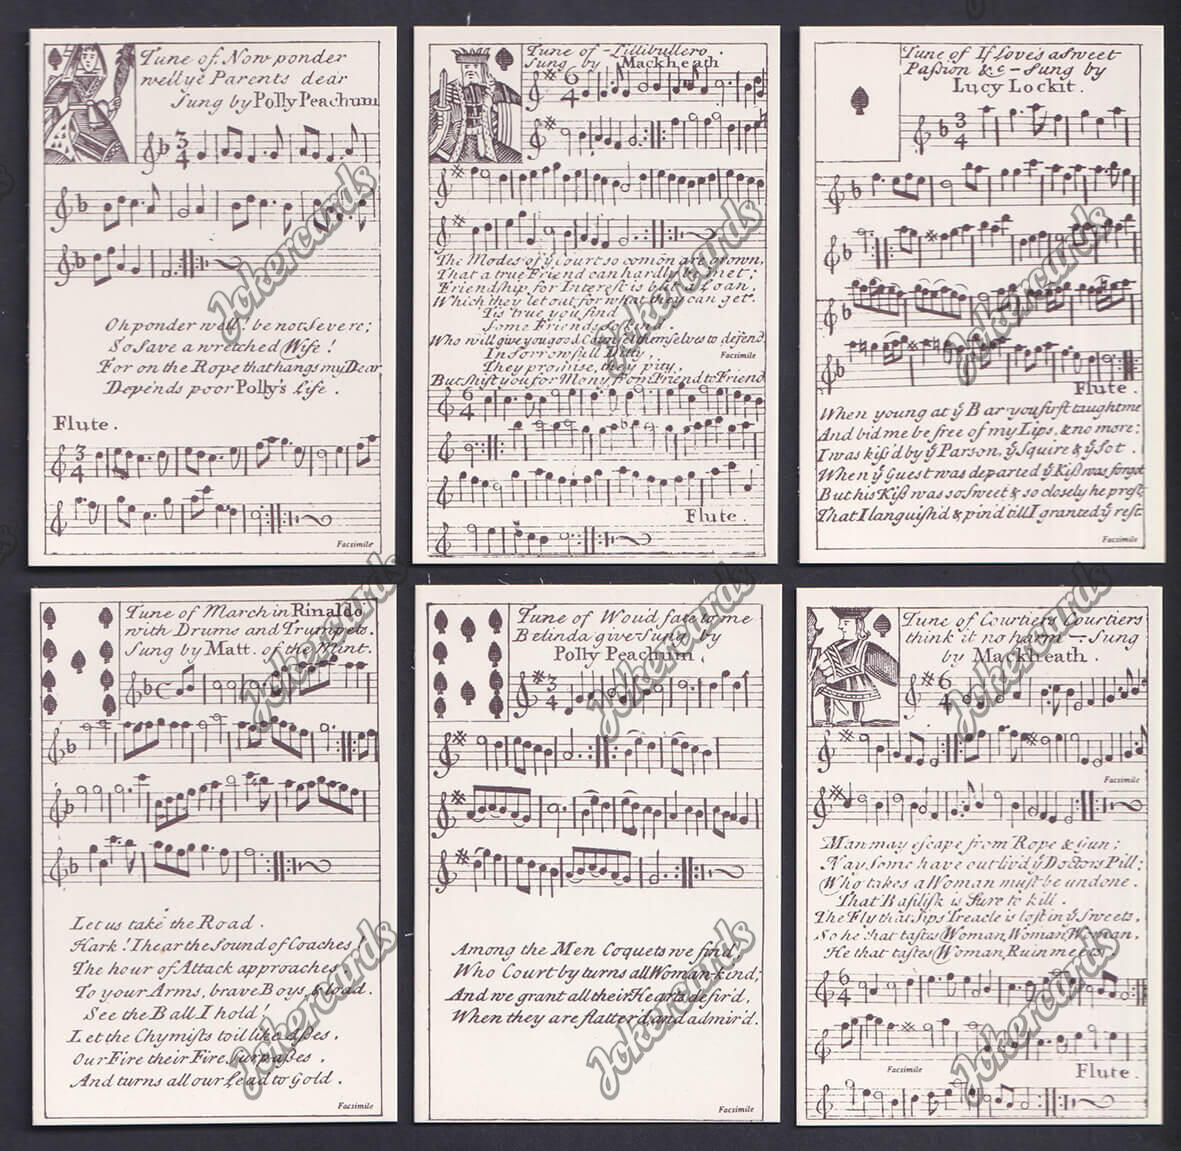 Tune of. Now ponder
well ye Parents dear
Sung by Polly Peachum
Oh ponder well, be not severe;
So save a wretched Wife!
For on the Rope that hangs my Dear
Depends poor Polly's Life.
Flute.
Facsimile
Tune of - Lillibullero.
Sung by Mackheath
The Modes of ẏ Court so comon are grown,
That a true Friend can hardly be met;
Friendship for Interest is but a Loan,
Which they let out for what they can get.
Tis true you find
Some Friends so kind.
Who will give you good Counsel themselves to defend
In sorrowfull Ditty,
They promise, they pity,
But shift you for Mony, from Friend to Friend
Facsimile
Flute.
Tune of If Love's a Sweet
Passion &c - Sung by
Lucy Lockit.
Flute.
When young at ẏ Bar you first taught me
And bid me be free of my Lips, & no more;
I was kiss'd by ẏ Parson, ẏ Squire & ẏ Sot.
When ẏ Guest was departed ẏ Kiss was forgot
But his Kiss was so Sweet & so closely he prest
That I languish'd & pin'd till I granted ẏ rest
Facsimile
Tune of March in Rinaldo
with Drums and Trumpets.
Sung by Matt. of the Mint.
Let us take the Road.
Hark! I hear the sound of Coaches!
The hour of Attack approaches,
To your Arms, brave Boys, & load.
See the Ball I hold;
Let the Chymists toil like Asses,
Our Fire their Fire surpasses,
And turns all our Lead to Gold.
Facsimile
Tune of Wou'd fate to me
Belinda give - Sung by
Polly Peachum,
Among the Men Coquets we find,
Who Court by turns all Woman-kind;
And we grant all their Hearts desir'd,
When they are flatter'd and admir'd.
Facsimile
Tune of Courtiers Courtiers
think it no harm - Sung
by Mackheath.
Facsimile
Man may escape from Rope & Gun;
Nay, some have outliv'd ẏ Doctors Pill;
Who takes a Woman must be undone.
That Basilisk is Sure to kill.
The Fly that Sips Treacle is lost in ẏ Sweets,
So he that tastes Woman, Woman, Woman,
He that tastes Woman, Ruin meets
Facsimile
Flute.
Jokercards
Jokercards
Jokercards
Jokercards
Jokercards
Jokercards
Jokercards
Jokercards
Jokercards